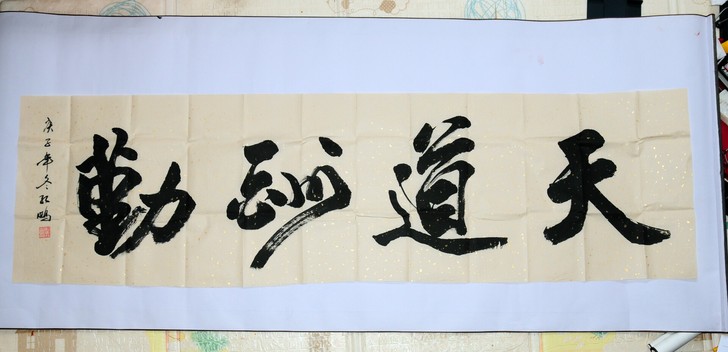 天道酬勤
庚子年冬松鹏